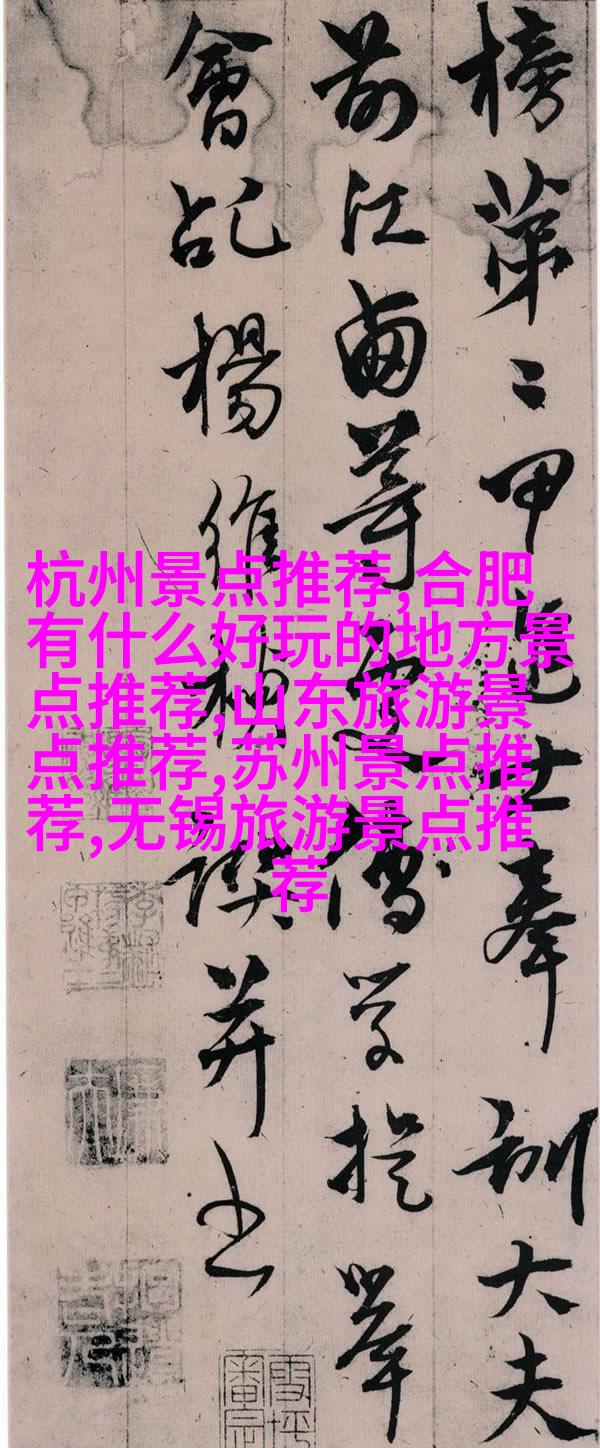 榜第二甲進士奉訓大夫
前江西等處儒學提舉
會稽楊維禎譔并書
杭州景点推荐,合肥
有什么好玩的地方景
点推荐,山东旅游景
点推荐,苏州景点推
荐,无锡旅游景点推
荐